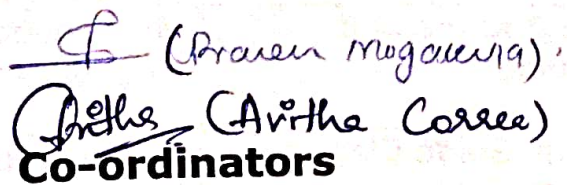 (Praven Mogaveera).
Avitha (Avitha Correa)
Co-ordinators